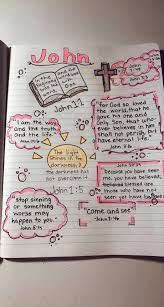 John
In the
beginning
was the
word
and the
word was
with
God
John 1:1
"For God so loved
the world, that he
gave his one and
only Son, that who
ever believes in him
shall not perish but
have eternal life."
John 3:16
"I am the way
and the truth
and the
life."
John 14:6
The light
shines in the
darkness, &
the darkness has
not overcome it
John 1:5
Because you have seen
me, you have believed,
blessed are
those who have not
seen yet have
Stop sinning
or something
worse may
happen to you."
John 5:14
"Come and see"